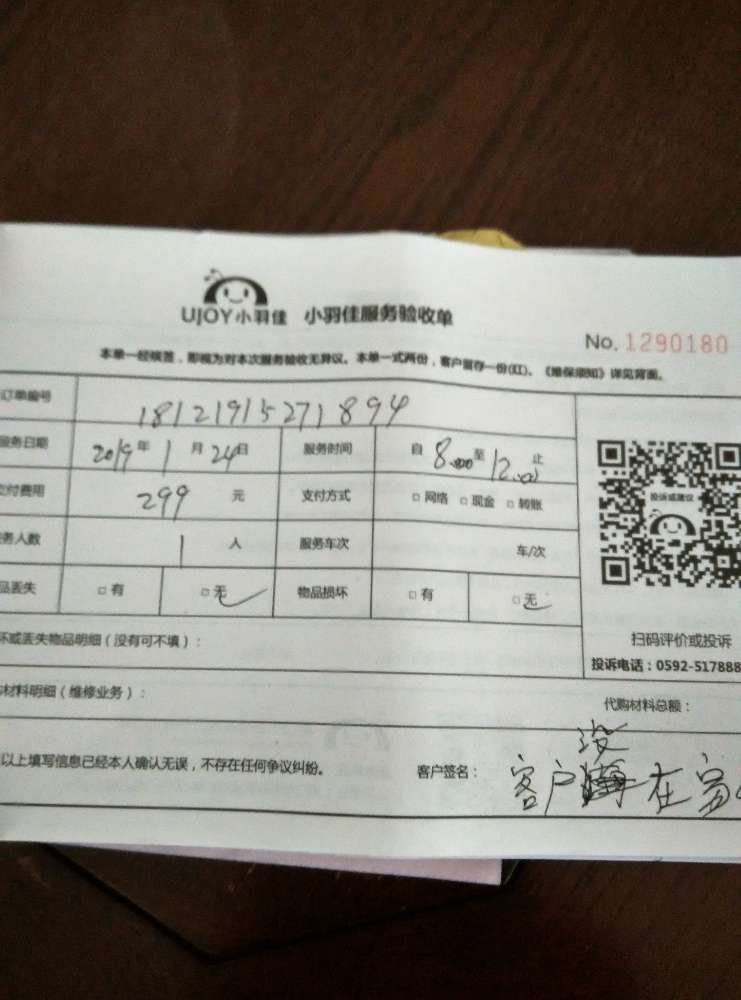 UJOY小羽佳 小羽佳服务验收单
No. 1290180
本单一经核签,即视为对本次服务验收无异议。本单一式两份,客户留存一份(红)、《维保须知》详见背面。
订单编号 1812191527 1894
服务日期 2019年 1月 24日 服务时间 自 8:00 至 12:00 止
支付费用 299 元 支付方式 □网络 □现金 □转账
务人数 1 人 服务车次 车/次
品丢失 □有 □无 物品损坏 □有 □无
投诉或建议
坏或丢失物品明细(没有可不填):
扫码评价或投诉
投诉电话:0592-517888
材料明细(维修业务): 代购材料总额:
以上填写信息已经本人确认无误,不存在任何争议纠纷。 客户签名: 客户没在家